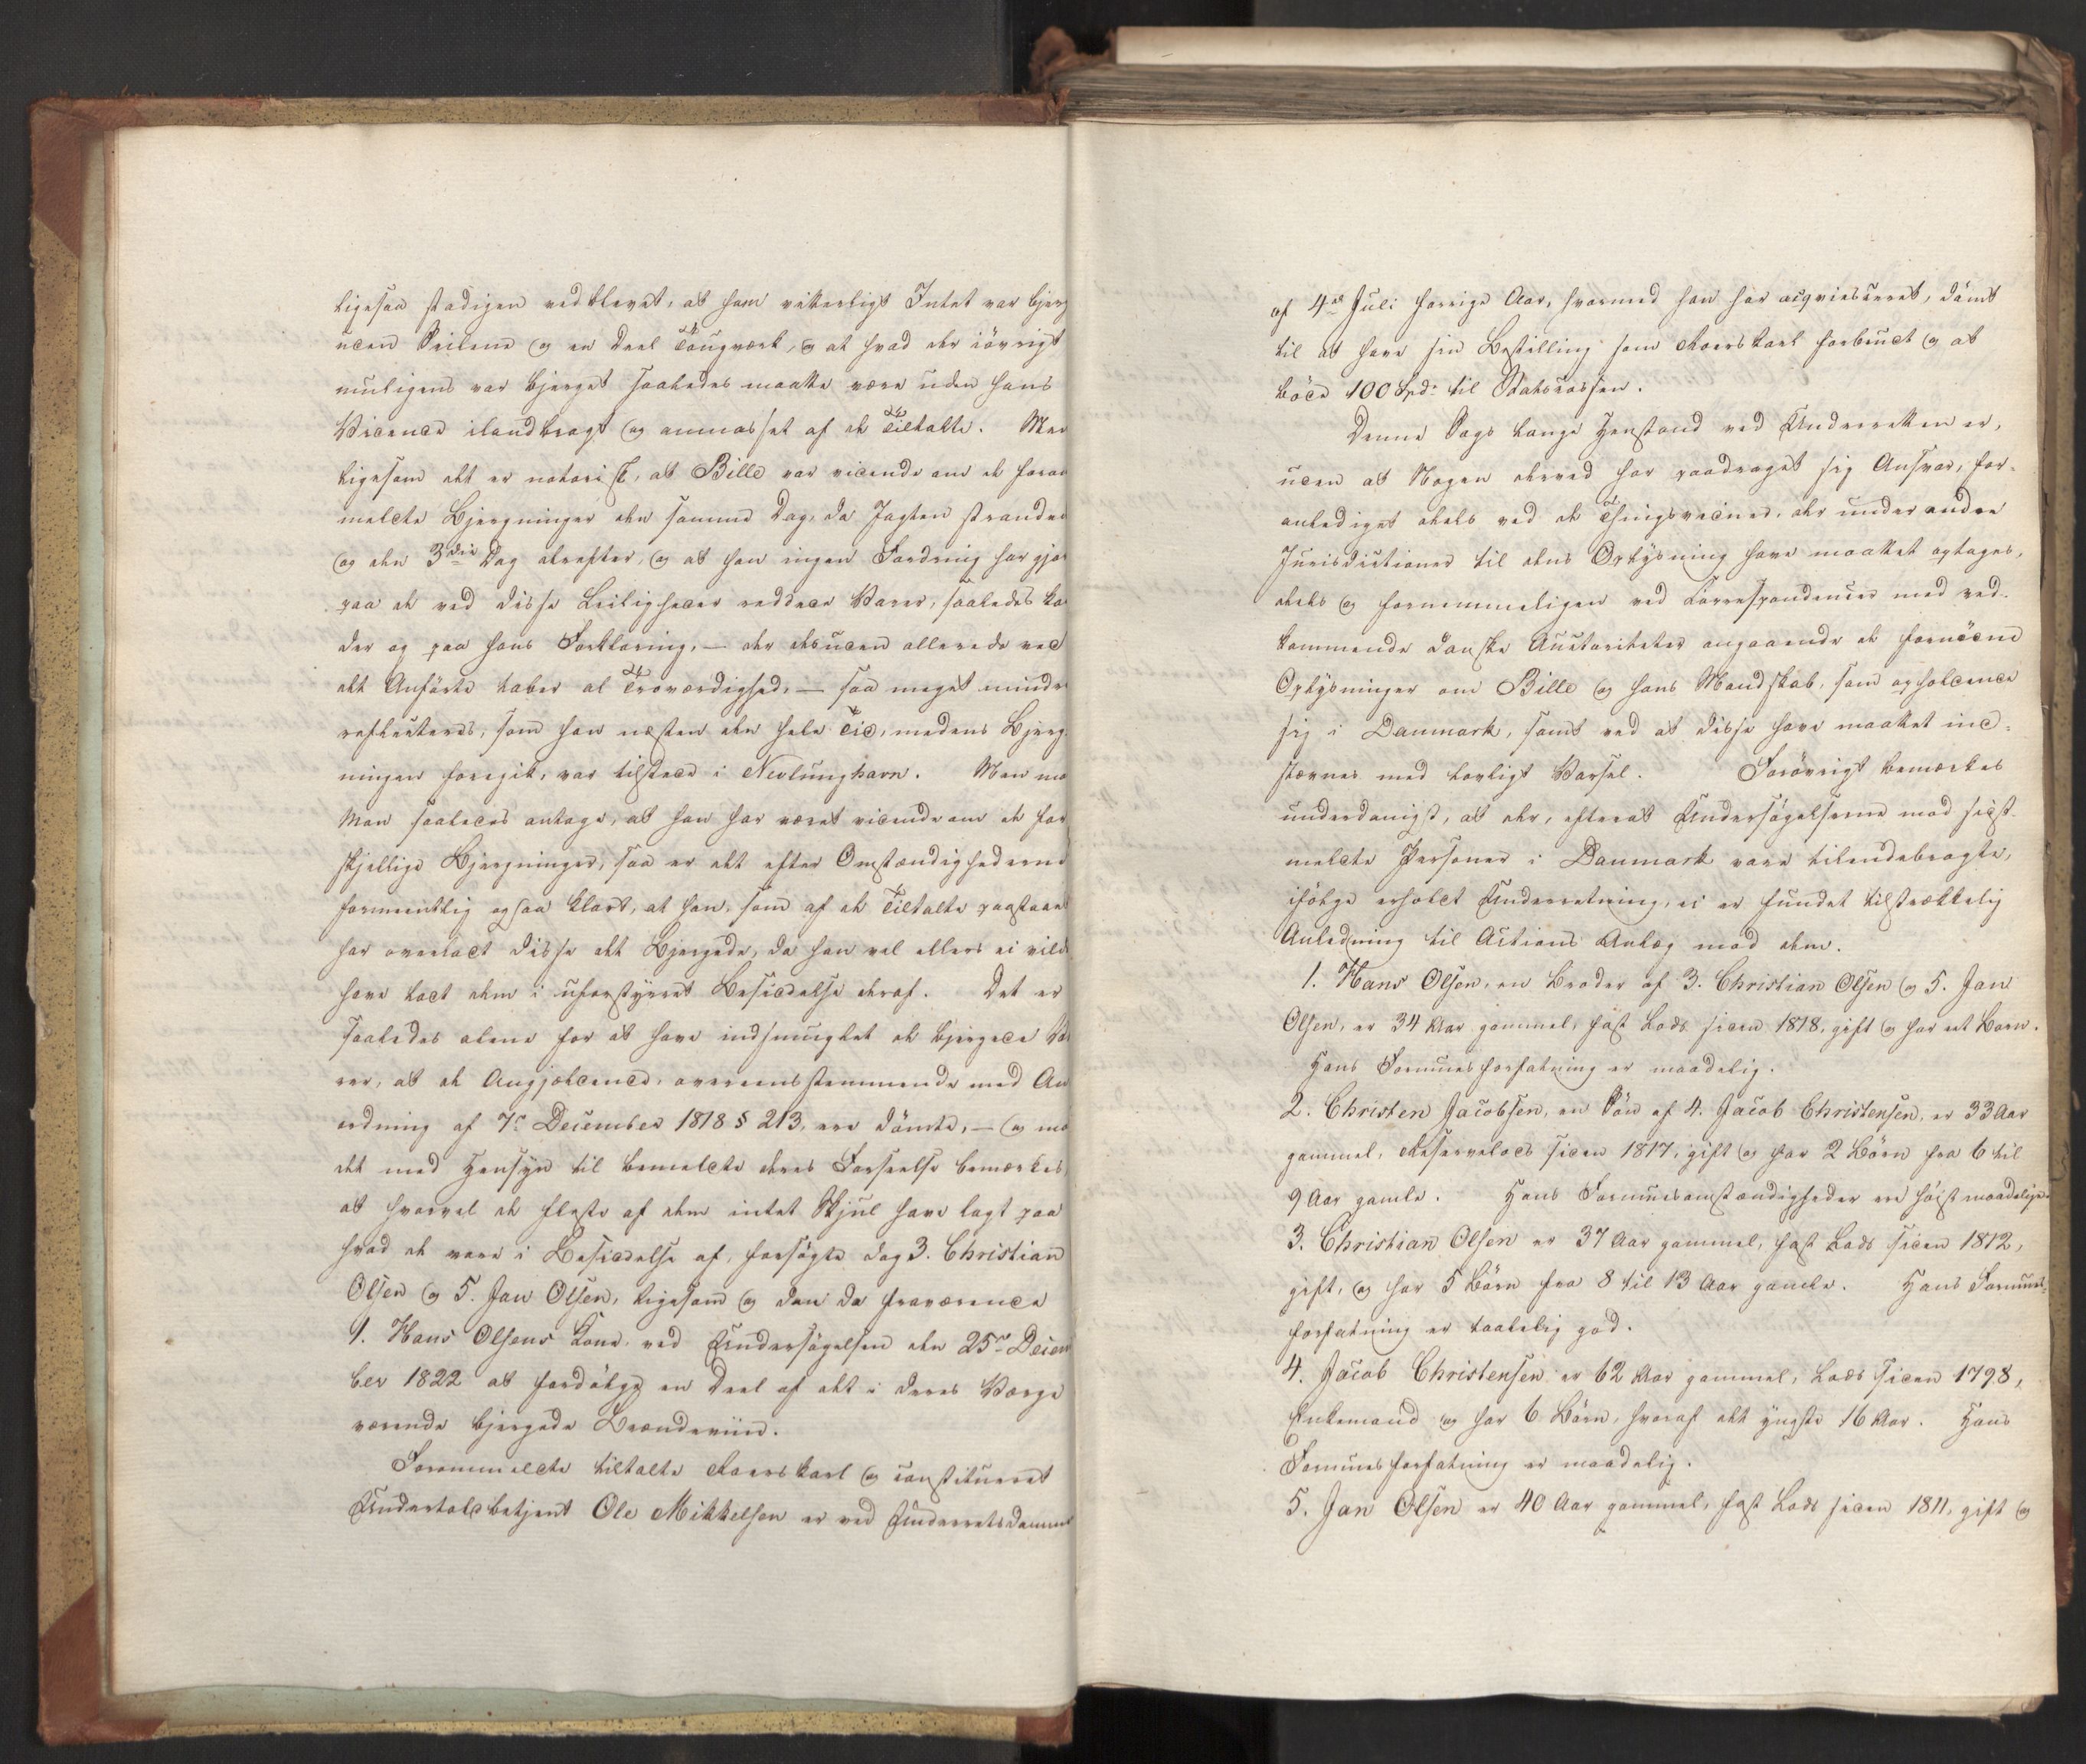 ligesaa stadigen vedblevet, at ham vitterligt Intet var bjerg
uden Seilene og en Deel Tougværk, og at hvad der iövrigt
muligens var bjerget saaledes maatte være uden hans
Vidende ilandbragt og anmasset af de Tiltalte. Men
ligesom det er notorisk, at Bille var vidende om de foran
meldte Bjergninger den samme Dag, da Jagten strandede
og den 3die Dag derefter, og at han ingen Fordring har gjor
paa de ved disse Leiligheder reddede Varer, saaledes ka
der og paa hans Forklaring, — der desuden allerede ved
det Anförte taber al Troværdighed, — saa meget mindre
reflecteres, som han næsten den hele Tid, medens Bjerg
ningen foregik, var tilstede i Nevlunghavn. Men maa
Man saaledes antage, at han har været vidende om de for
skjellige Bjergninger, saa er det efter Omstændighederne
formeentlig ogsaa klart, at han, som af de Tiltalte paastaaet
har overladt disse det Bjergede, da han vel ellers ei vilde
have ladt dem i uforstyrret Besiddelse deraf. Det er
saaledes alene for at have indsmuglet de bjergede Va
rer, at de Angjældende, overeensstemmende med An
ordning af 7de December 1818 § 213, ere dömte, — og maa
det med Hensyn til bemeldte deres Forseelse bemærkes,
at hvorvel de fleste af dem intet Skjul have lagt paa
hvad de vare i Besiddelse af, forsögte dog 3. Christian
Olsen og 5. Jan Olsen, ligesom og den da fraværende
1. Hans Olsens Kone, ved Undersögelsen den 25de Decem
ber 1822 at fordölge en Deel af det i deres Værge
værende bjergede Brændeviin.
Forommeldte tiltalte Roerskarl og constitueret
Undertoldbetjent Ole Mikkelsen er ved Underretsdommen
af 4de Juli forrige Aar, hvormed han har acqviesceret, dömt
til at have sin Bestilling som Roerskarl forbrudt og at
böde 100 Spd. til Statscassen.
Denne Sags lange Henstand ved Underretten er,
uden at Nogen derved har paadraget sig Ansvar, for-
anlediget deels ved de Thingsvidner, der under andre
Jurisdictioner til dens Oplysning have maattet optages,
deels og fornemmeligen ved Correspondencer med ved-
kommende danske Auctoriteter angaaende de fornödne
Oplysninger om Bille og hans Mandskab, som opholdende
sig i Danmark, samt ved at disse have maattet ind-
stævnes med lovligt Varsel. Forövrigt bemærkes
underdanigst, at der, efterat Undersögelserne mod sidst-
meldte Personer i Danmark vare tilendebragte,
ifölge erholdt Underretning, ei er fundet tilstrækkelig
Anledning til Actions Anlæg mod dem.
1. Hans Olsen, en Broder af 3. Christian Olsen og 5. Jan
Olsen, er 34 Aar gammel, fast Lods siden 1818, gift og har eet Barn.
Hans Formuesforfatning er maadelig.
2. Christen Jacobsen, en Sön af 4. Jacob Christensen, er 33 Aar
gammel, Reservelods siden 1817, gift og har 2 Börn fra 6 til
9 Aar gamle. Hans Formuesomstændigheder ere höist maadelige.
3. Christian Olsen er 37 Aar gammel, fast Lods siden 1812,
gift, og har 5 Börn fra 8 til 13 Aar gamle. Hans Formues-
forfatning er taalelig god.
4. Jacob Christensen er 62 Aar gammel, Lods siden 1798,
Enkemand og har 6 Börn, hvoraf det yngste 16 Aar. Hans
Formuesforfatning er maadelig.
5. Jan Olsen er 40 Aar gammel, fast Lods siden 1811, gift og